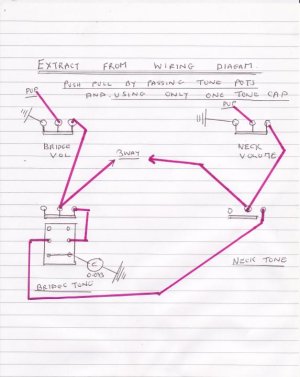 EXTRACT FROM WIRING DIAGAM.
PUSH PULL BY PASSING TONE POTS
AND USING ONLY ONE TONE CAP
PUP
PUP
BRIDGE
VOL
3WAY
NECK
VOLUME
C
0.043
BRIDGE TONE
NECK TONE